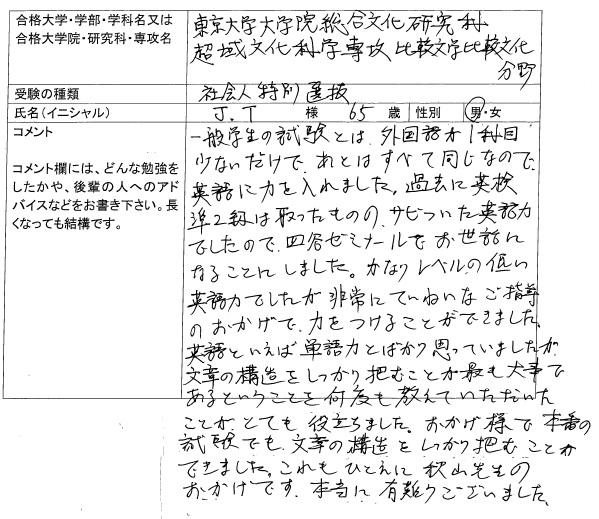 合格大学・学部・学科名又は
合格大学院・研究科・専攻名
東京大学大学院総合文化研究科
超域文化科学専攻 比較文学比較文化
分野
受験の種類
社会人特別選抜
氏名(イニシャル)
J.T 様 65 歳 性別 男・女
コメント
コメント欄には、どんな勉強を
したかや、後輩の人へのアド
バイスなどをお書き下さい。長
くなっても結構です。
一般学生の試験とは、外国語が1科目
少ないだけで、あとはすべて同じなので、
英語に力を入れました。過去に英検
準2級は取ったものの、サビついた英語力
でしたので、四谷ゼミナールでお世話に
なることにしました。かなりレベルの低い
英語力でしたが非常にていねいなご指導
のおかげで、力をつけることができました。
英語といえば単語力とばかり思っていましたが、
文章の構造をしっかり把むことが最も大事で
あるということを何度も教えていただいた
ことが、とても役立ちました。おかげ様で本番の
試験でも、文章の構造をしっかり把むことが
できました。これもひとえに秋山先生の
おかげです。本当に有難うございました。